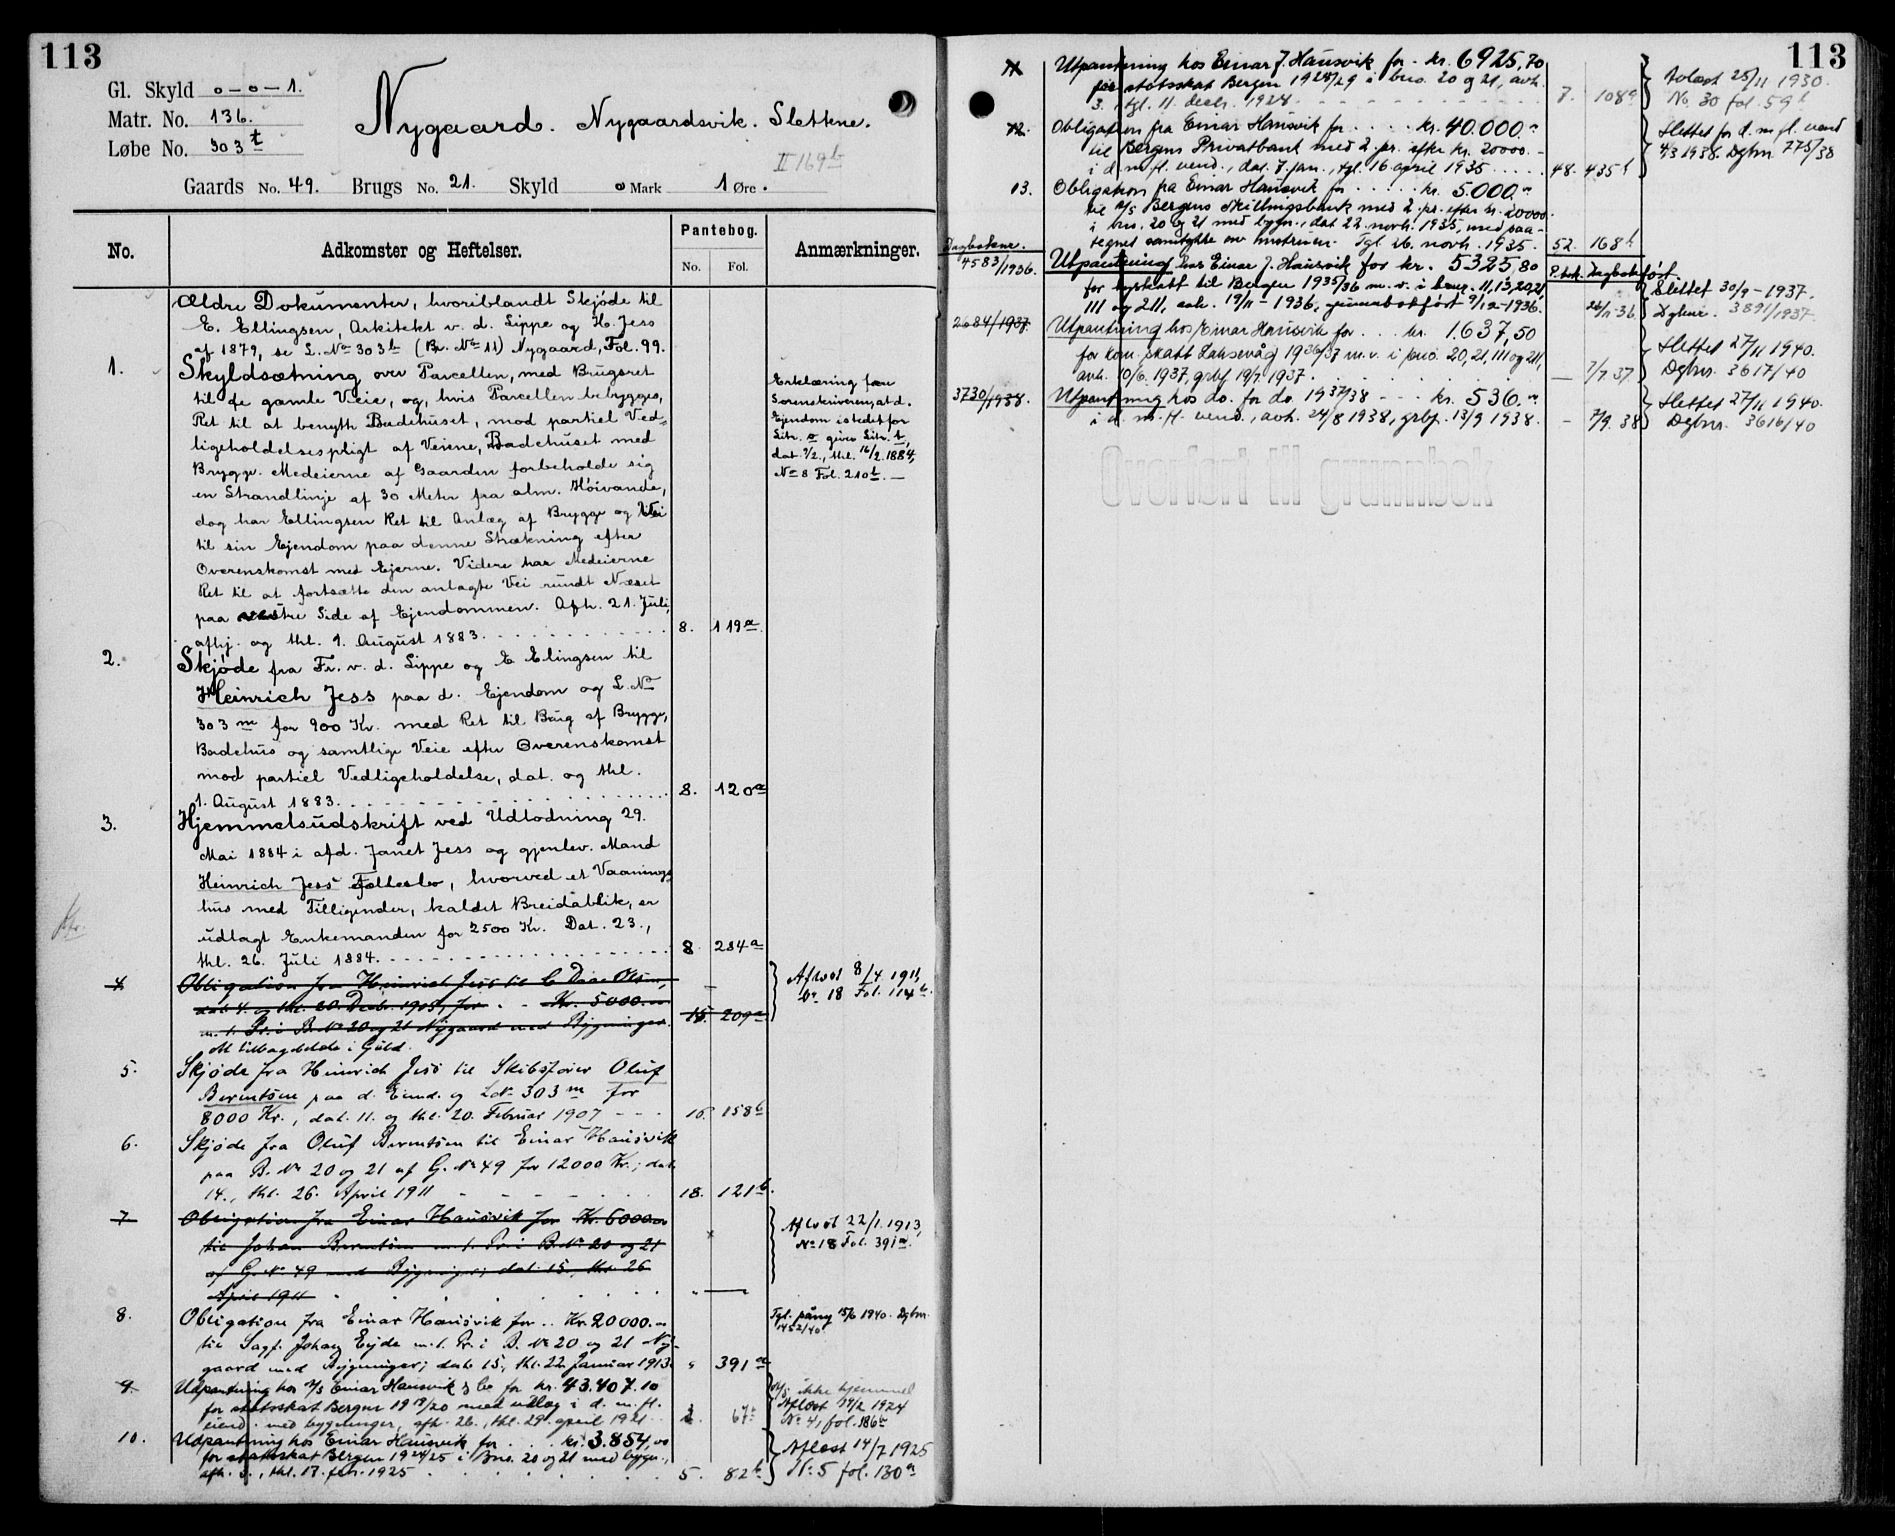 113
Gl. Skyld 0-0-1.
Matr. No. 136.
Løbe No. 303 t
Nygaard. Nygaardsvik. Slettene.
II 169 b
Gaards No. 49. Brugs No. 21. Skyld 0 Mark 1 Øre.
No. Adkomster og Heftelser. Pantebog. No. Fol. Anmærkninger.
Ældre Dokumenter, hvoriblandt Skjøde til
E. Ellingsen, Arkitekt v. d. Lippe og H. Jess
af 1879, se L. No 303 b (Br. No 11) Nygaard, Fol. 99.
1. Skyldsætning over Parcellen, med Brugsret
til de gamle Veie, og, hvis Parcellen bebygges,
Ret til at benytte Badehuset, mod partiel Ved-
ligeholdelsespligt af Veiene, Badehuset med
Brygge. Medeierne af Gaarden forbeholde sig
en Strandlinje af 30 Meter fra alm. Høivande,
dog har Ellingsen Ret til Anlæg af Brygge og Vei
til sin Ejendom paa denne Strækning efter
Overenskomst med Ejerne. Videre har Medeierne
Ret til at fortsætte den anlagte Vei rundt Næset
paa vestre Side af Ejendommen. Afh. 21. Juli,
afhj. og thl. 1. August 1883. 8. 119 a
Erklæring fra
Sorenskriveren, at d.
Ejendom istedetfor
Litr. o given Litr. t,
dat. 7/2., thl. 16/2. 1884,
No 8 Fol. 210 b. —
2. Skjøde fra Fr. v. d. Lippe og E Elingsen til
Heinrich Jess paa d. Ejendom og L. No
303 m for 900 Kr. med Ret til Brug af Brygge,
Badehus og samtlige Veie efter Overenskomst
mod partiel Vedligeholdelse, dat. og thl.
1. August 1883. 8. 120 a
3. Hjemmelsudskrift ved Udlodning 29.
Mai 1884 i afd. Janet Jess og gjenlev. Mand
Heinrich Jess' Fællesbo, hvorved et Vaanings-
hus med Tilligender, kaldet Breidablik, er
udlagt Enkemanden for 2500 Kr. Dat. 23.,
thl. 26. Juli 1884. 8 284 a
4 Obligation fra Heinrich Jess til C Daae
dat. 4. og thl. 20. Decb. 1905, for Kr. 5000.00
m. 1. Pr. i B. No 20 og 21 Nygaard med Bygninger. 15. 209 a
At tilbagebetale i Guld.
Aflæst 8/4 1911,
No 18 Fol. 114 b.
5. Skjøde fra Heinrich Jess til Skibsfører Oluf
Berentsen paa d. Eiend. og L. No 303 m for
8000 Kr., dat. 11. og thl. 20. Februar 1907 16. 158 b
6. Skjøde fra Oluf Berentsen til Einar Hausvik
paa B. No 20 og 21 af G. No 49 for 12000 Kr.; dat.
14., thl. 26. April 1911 18. 121 b.
7 Obligation fra Einar Hausvik for Kr. 6000.00
til Johan Berentsen m. 1. Pr. i B. No 20 og 21
af G. No 49 med Bygninger; dat. 15., thl. 26
April 1911
Aflæst 22/1. 1913,
No 18 Fol. 391 a.
8. Obligation fra Einar Hausvik for .. Kr. 20000.00
til Sagf. Johan Eyde m. 1. Pr. i B. No 20 og 21 Ny-
gaard med Bygninger; dat. 15., thl. 22. Januar 1913. " 391 a
Tgl. påny 15/6 1940. Dgbnr.
1452/40.
9. Udpantning hos A/S Einar Hausvik & Co for kr. 43.407.10
for statsskat Bergen 1919/20 med udlæg i d. m. fl.
eiend. med bygninger, afh. 26., thl. 29. april 1921 2. 67 a
A/S ikke hjemmel
Aflæst 14/2 1924
No 4, fol. 186 a
10. Udpantning hos Einar Hausvik for kr. 3.854,00
for statsskat Bergen 1924/25 i Bno. 20 og 21 med bygn.,
afh. 3., thl. 17. feb. 1925 5. 82 b
Aflæst 14/7 1925
No 5 fol. 130 a
113
11 Utpantning hos Einar J. Hausvik for - kr. 6925,70
for statsskat Bergen 1928/29 i bno. 20 og 21, avh.
3., tgl. 11. decbr. 1928 7. 108 a
Avlæst 25/11 1930.
No. 30 fol. 59 b
12. Obligation fra Einar Hausvik for kr. 40.000.00
til Bergens Privatbank med 2. pr. efter kr. 20000.-
i d. m. fl. eiend., dat. 7. jan., tgl. 16 april 1935 48. 435 b
Slettet for d. m. fl. eiend
4/3 1938. Dgbnr 775/38
13. Obligation fra Einar Hausvik for kr. 5.000.00
til A/S Bergens Skillingsbank med 2. pr. efter kr. 20000.-
i bno. 20 og 21 med bygn., dat. 22. novbr. 1935, med paa-
tegnet samtykke av hustruen. Tgl. 26. novbr. 1935. 52. 168 b
Dagboknr.
4583/1936. Utpantning hos Einar J. Hausvik for kr. 5325,80
for byskatt til Bergen 1935/36 m. v. i bnr. 11, 13, 20, 21,
111 og 211, avh. 19/11 - 1936, grunnbokført 9/12-1936.
P.bok. Dagbokført.
24/11-36.
Slettet 30/9-1937.
Dgbnr. 3891/1937.
2684/1937. Utpantning hos Einar Hausvik for kr. 1.637,50
for kom. skatt Laksevåg 1936/37 m. v. i bno. 20, 21, 111 og 211,
avh. 10/6. 1937, grbf. 19/7. 1937 — 7/7. 37.
Slettet 27/11 1940.
Dgbnr. 3617/40
3730/1938. Utpantning hos do. for do. 1937/38 --- kr. 536.00
i d. m. fl. eiend., avh. 24/8 1938, grbf. 13/9 1938 - — 7/9. 38
Slettet 27/11 1940.
Dgbnr. 3616/40
Overført til grunnbok